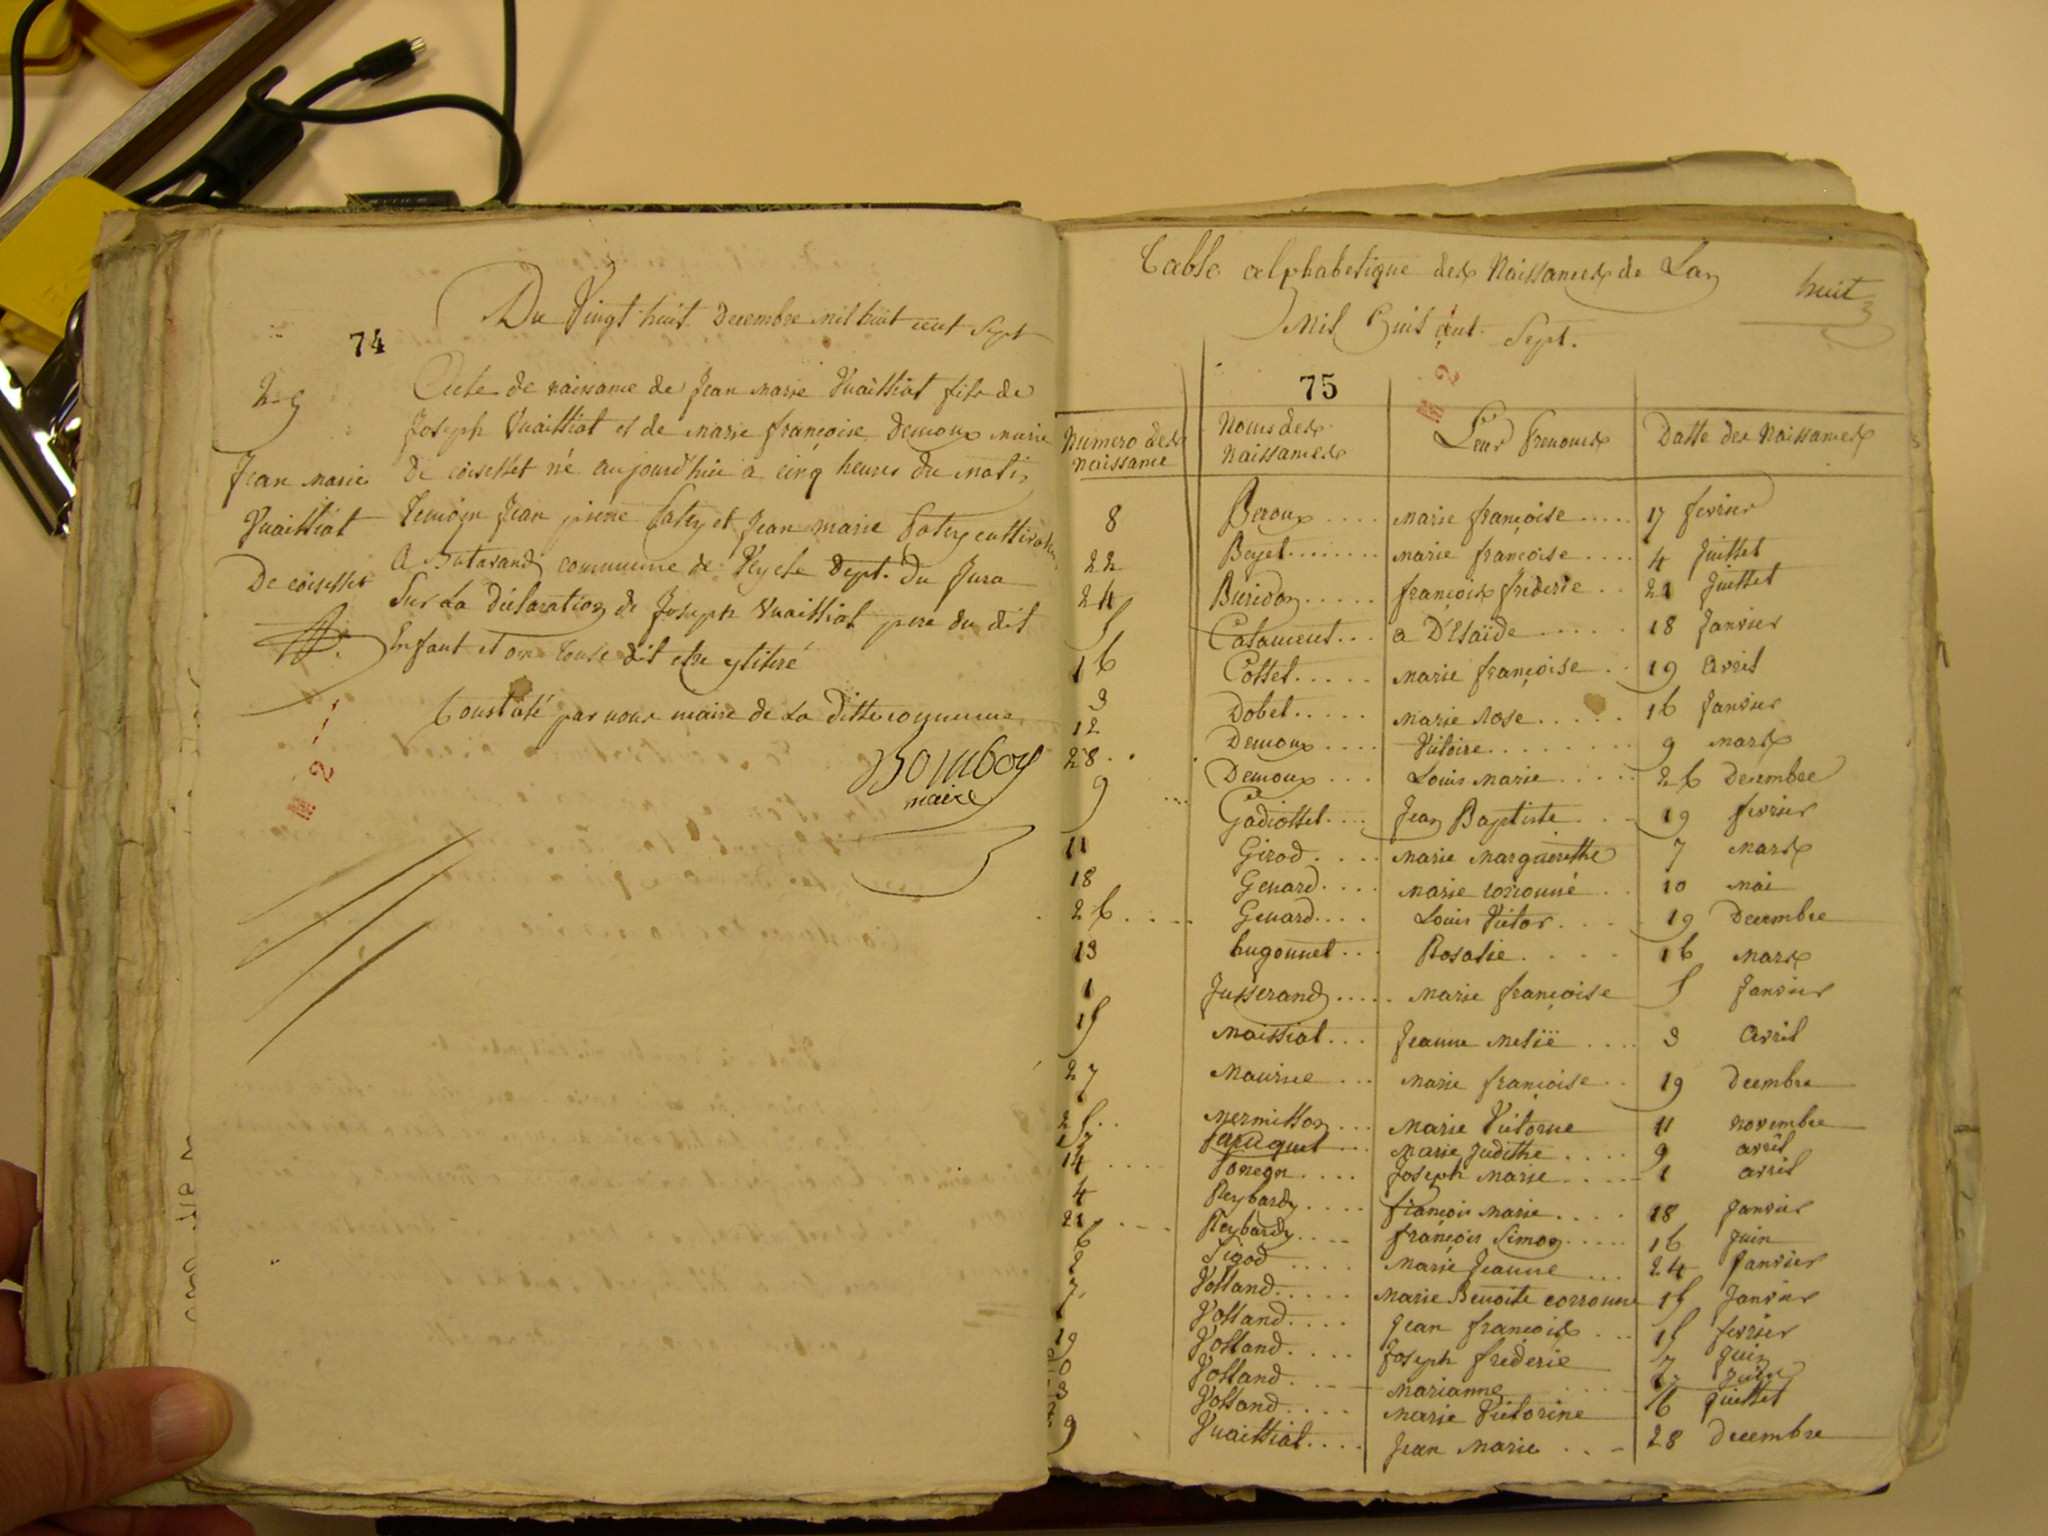 74
Du Vingt huit Decembre mil huit cent Sept
29
Jean marie
Vuaittiat
De coisellet
Acte de naissance de Jean marie Vuaittiat fils de
Joseph Vuaittiat et de marie françoise Demoux marie
De coisellet né aujourd'hui a cinq heures du matin
temoin Jean pierre et Jean marie cultivateur
A commune de Dept. du Jura
Sur La Déclaration de Joseph Vuaittiat pere du dit
Enfant et on dit etre
Constaté par nous maire de La Ditte commune
Bomboy
maire
M 2
Table alphabetique des Naissances de Lan
Mil huit cent Sept.
huit
75
M 2
Numero des naissance	Noms des naissances	Leur Prenoms	Datte des Naissances
8	Beroux	marie françoise	17 fevrier
22	Beyet	marie françoise	4 Juillet
24	Buridon	françois frederic	21 Juillet
5	Catament	a D'Elaïde	18 Janvier
16	Cottet	marie françoise	19 avril
3	Dobet	marie Rose	16 Janvier
12	Demoux	Victoire	9 mars
28	Demoux	Louis marie	26 Decembre
9	Gadiollet	Jean Baptiste	19 fevrier
11	Girod	marie marguerithe	7 mars
18	Genard	marie coronné	10 mai
26	Genard	Louis Victor	19 Decembre
13	hugonnet	Rosalie	16 mars
1	Jusserand	marie françoise	5 Janvier
15	maissiat	Jeanne melië	3 avril
27	maurice	marie françoise	19 Decembre
25	mermillon	marie Victorine	11 novembre
17		marie Judithe	9 avril
14		Joseph marie	1 avril
4	Reybard	françois marie	18 Janvier
21	Reybard	françois Simon	16 Juin
6	Sigod	marie Jeanne	24 Janvier
2	Volland	marie Benoite corronne	15 Janvier
7	Volland	Jean françois	15 fevrier
19	Volland	Joseph frederic	7 Juin
0	Volland	marianne	Juin
3	Volland	marie Victorine	16 Juillet
9	Vuaittiat	Jean marie	28 Decembre